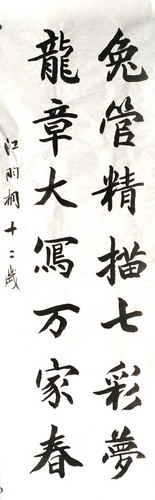 兔管精描七彩夢
龍章大寫万家春
江雨桐十二歲